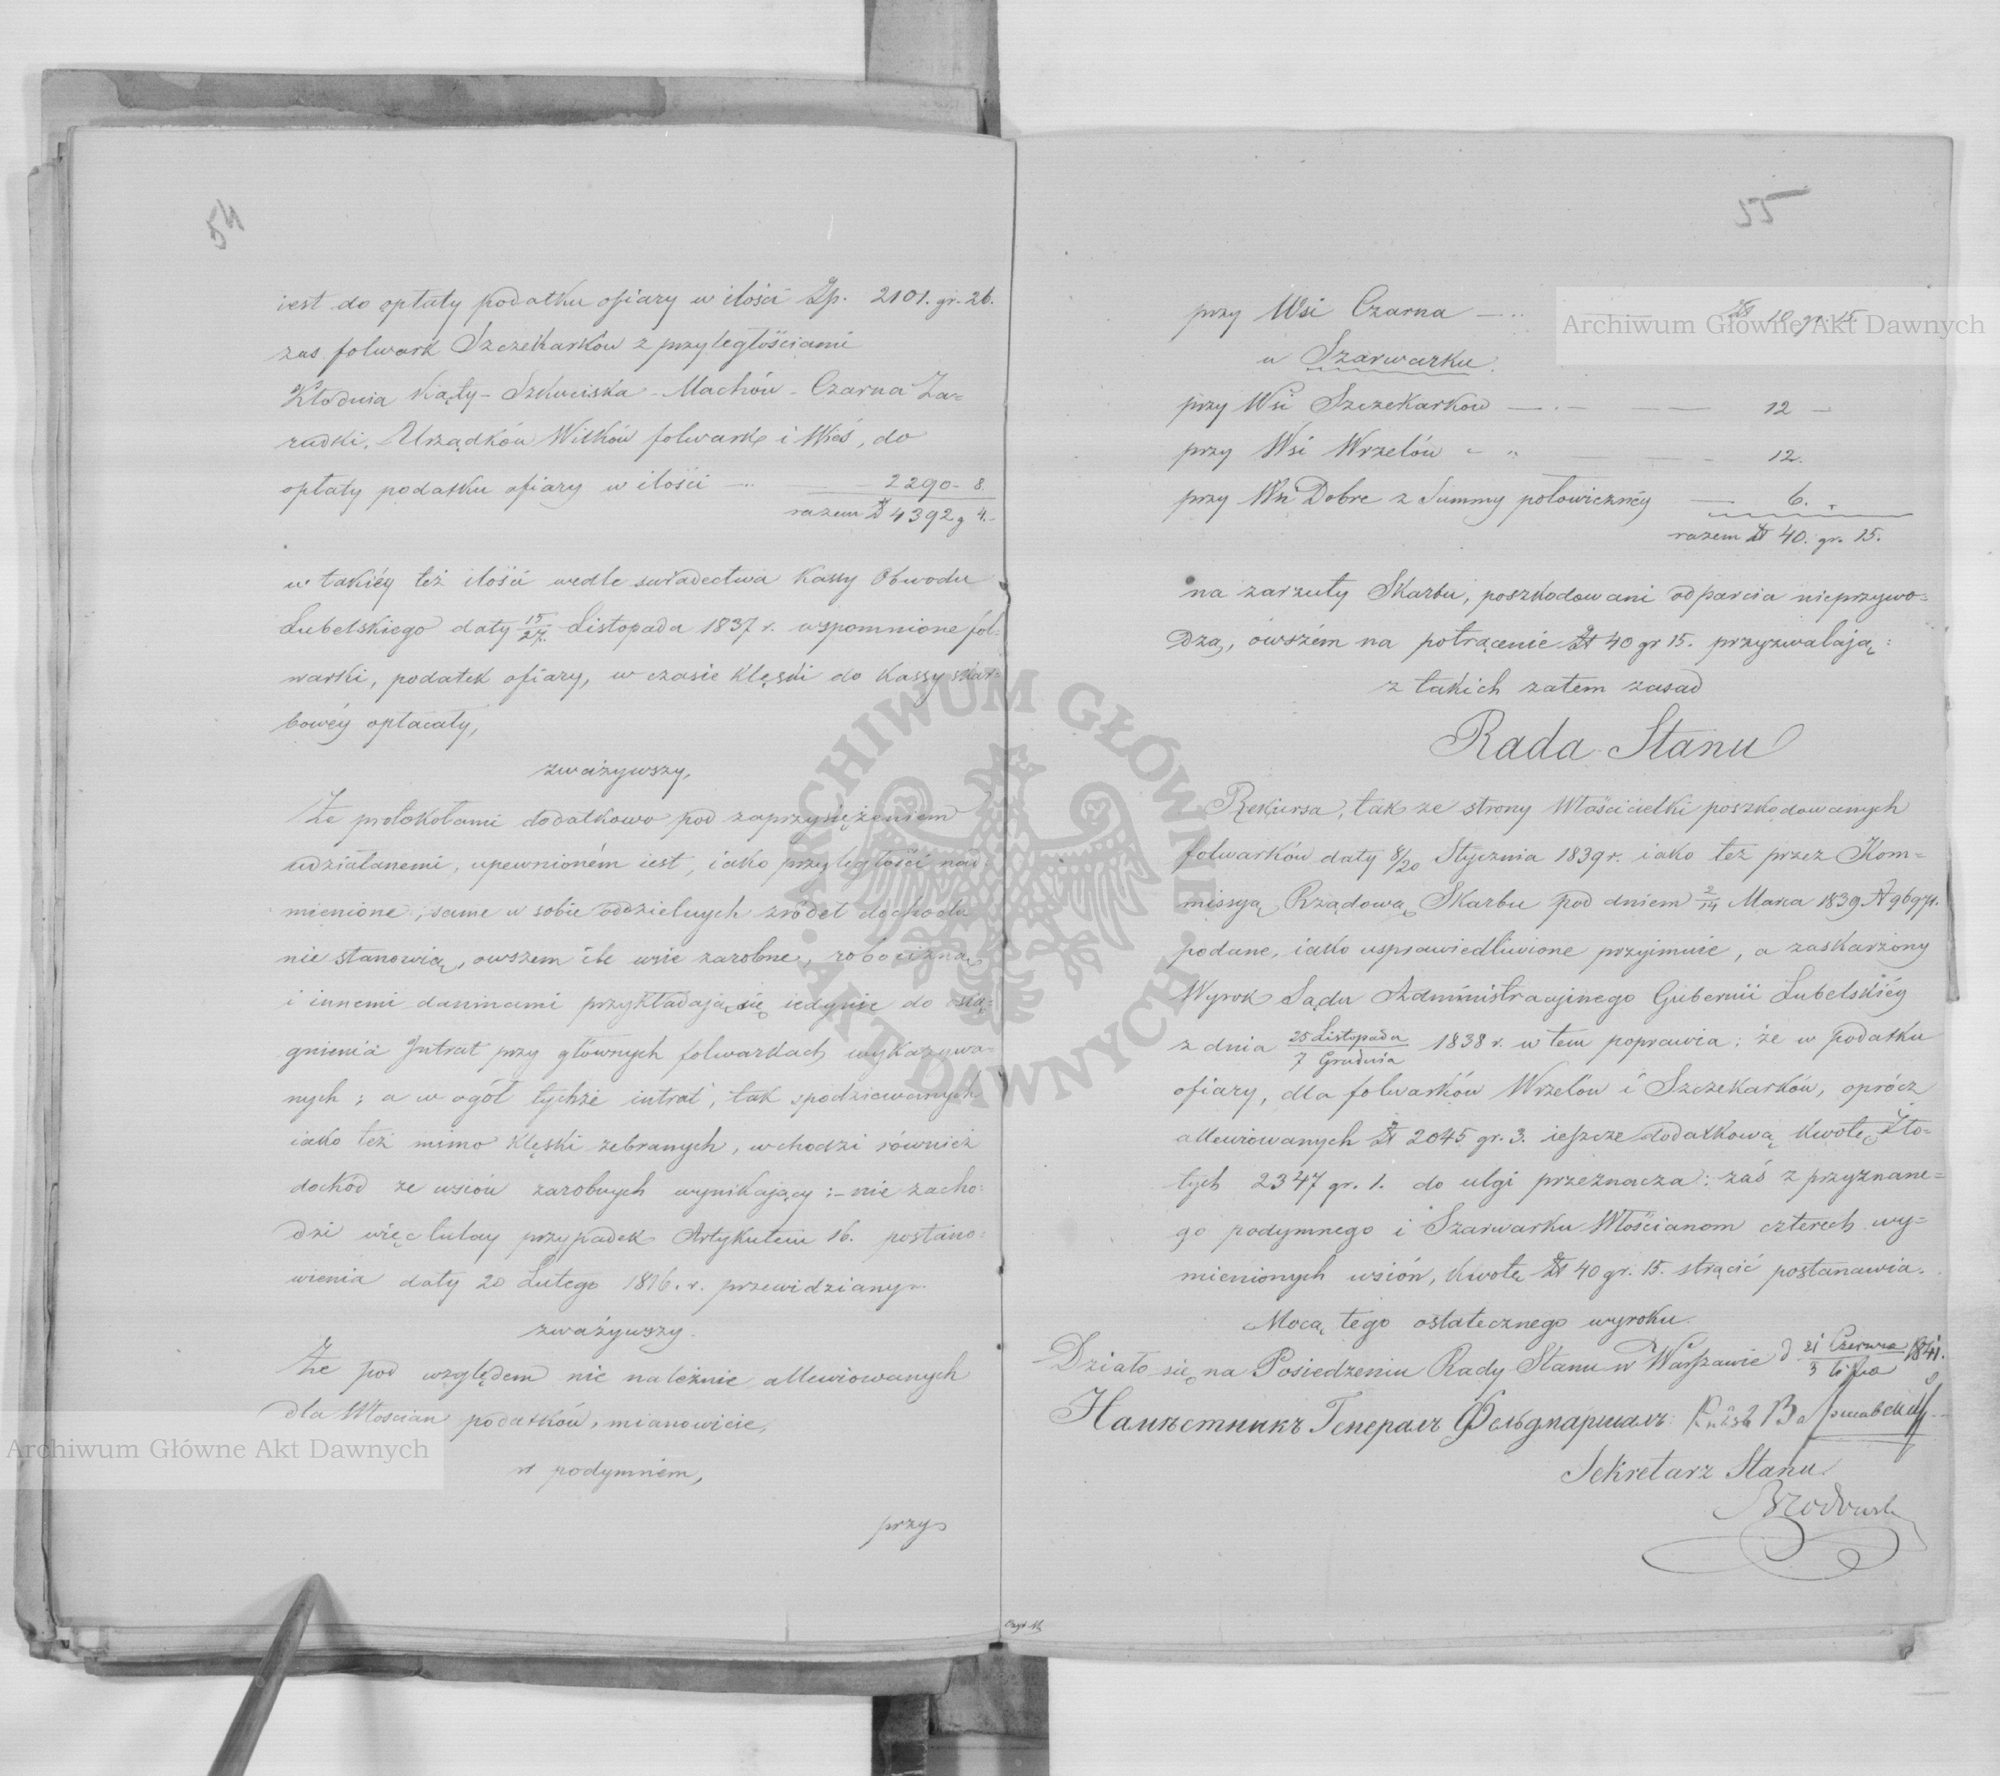 54
iest do opłaty podatku ofiary w ilości Zp. 2101. gr. 26.
zas folwark Szczekarków z przyległościami
Kłodnia Kąty - Szkuciska - Machów - Czarna Za=
radki, Urządków Wilków folwark i Wieś, do
opłaty podatku ofiary w ilości — 2290 - 8.
razem Zł 4392 g 4.-
w takiéy też ilości wedle swiadectwa Kassy Obwodu
Lubelskiego daty 15/27. Listopada 1837 r. wspomnione fol=
warki, podatek ofiary, w czasie klęski do Kassy Skar=
bowéy opłacały,
zważywszy,
Że protokołami dodatkowo pod zaprzysiężeniem
udziałanemi, upewnioném iest, iako przyległości nad=
mienione, same w sobie oddzielnych zródeł dochodu
nie stanowią, owszem ile wsie zarobne, robocizną
i innemi daninami przykładają się iedynie do osią=
gnienia Intrat przy głównych folwarkach wykazywa=
nych; a w ogół tychże intrat, tak spodziewanych
iako też mimo klęski zebranych, wchodzi również
dochód ze wsiów zarobnych wynikający:- nie zacho=
dzi więc tutay przypadek Artykułem 16. postano=
wienia daty 20 Lutego 1816. r. przewidziany.
zważywszy.
Że pod względem nie należnie allewiowanych
dla Włoscian podatków, mianowicie,
w podymném,
przy
55
przy Wsi Czarna — Zł 10 gr. 15.
w Szarwarku.
przy Wsi Szczekarków — 12 —
przy Wsi Wrzelów — 12.
przy Wsi Dobre z Summy połowicznéy — 6.
razem Zł 40. gr. 15.
na zarzuty Skarbu, poszkodowani odparcia nieprzywo=
dzą, owszém na potrącenie Zł 40 gr 15. przyzwalają:
z takich zatem zasad
Rada Stanu
Rekursa, tak ze strony Właścicielki poszkodowanych
folwarków daty 8/20 Stycznia 1839 r. iako też przez Kom=
missyą Rządową Skarbu pod dniem 2/14 Marca 1839 N 96971.
podane, iako usprawiedliwione przyimuie, a zaskarżony
Wyrok Sądu Administracyinego Gubernii Lubelskiéy
z dnia 25 Listopada / 7 Grudnia 1838 r. w tem poprawia; że w podatku
ofiary, dla folwarków Wrzelów i Szczekarków, oprócz
allewiowanych Zł 2045 gr. 3. ieszcze dodatkową kwotę Zło=
tych 2347 gr. 1. do ulgi przeznacza: zaś z przyznane=
go podymnego i Szarwarku Włościanom czterech wy=
mienionych wsiów, kwotę Zł 40 gr. 15. strącić postanawia.
Mocą tego ostatecznego wyroku.
Działo się na Posiedzeniu Rady Stanu w Warszawie d 21 Czerwca / 3 Lipca 1841.
Намѣстникъ Генералъ Фельдмаршалъ Князь Варшавскій
Sekretarz Stanu.
Brzozowski
Archiwum Główne Akt Dawnych
Archiwum Główne Akt Dawnych
ARCHIWUM GŁÓWNE AKT DAWNYCH